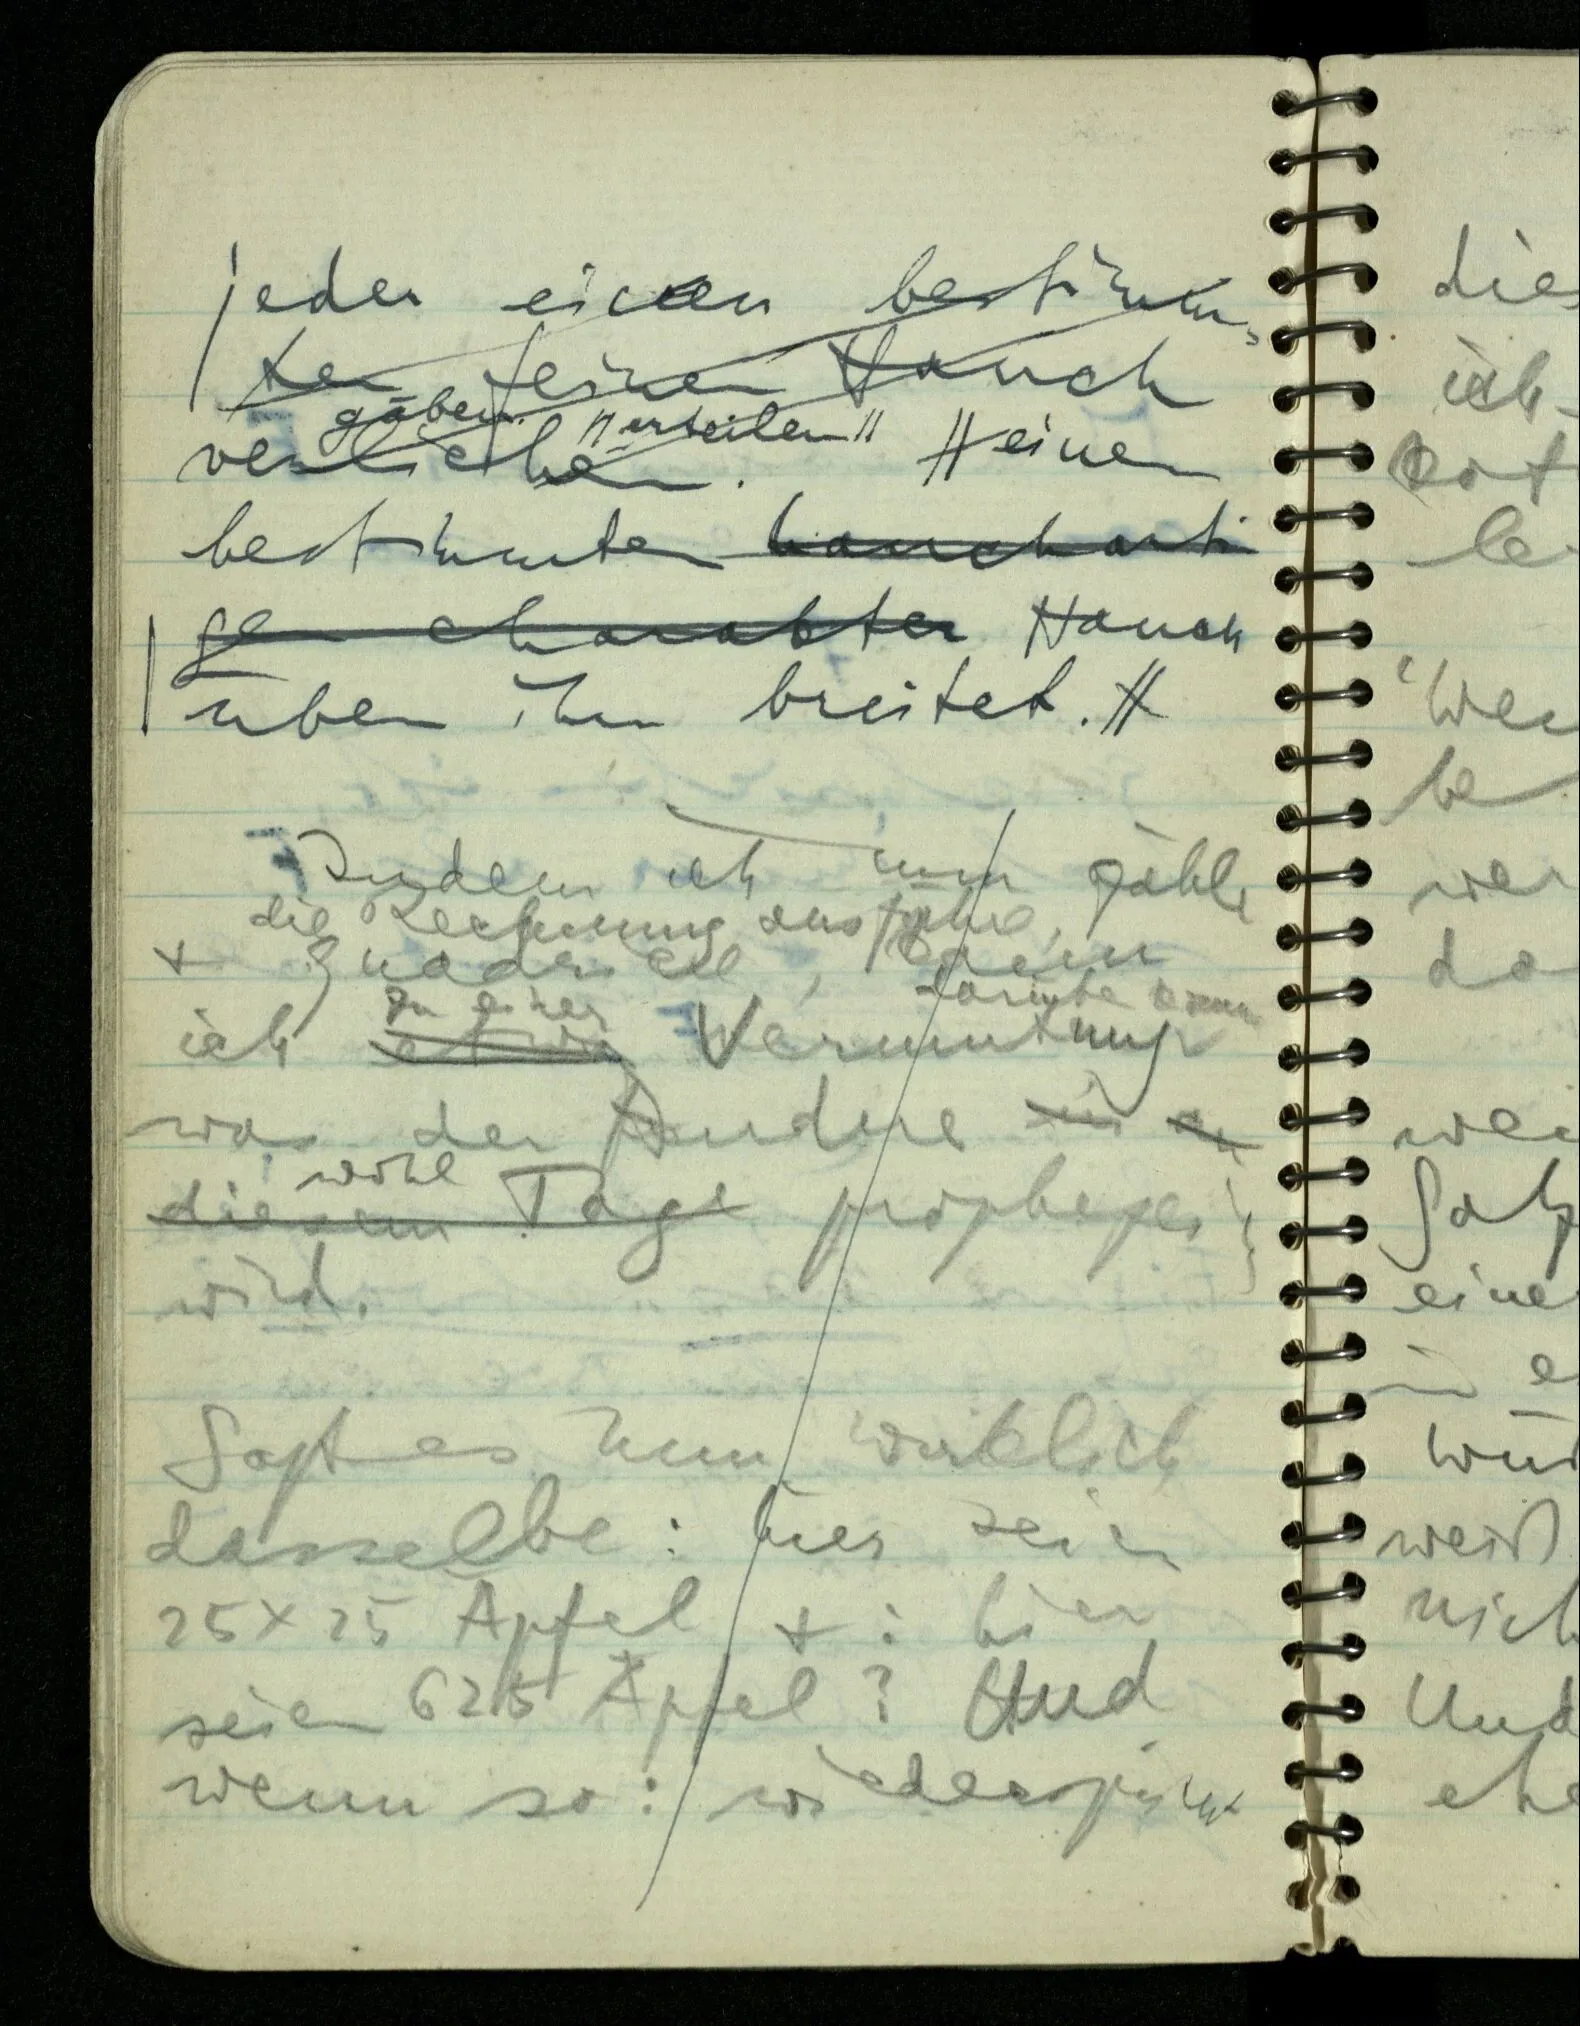 jeder einen bestimm-
ten feinen Hauch
gäben. "erteilen"
verliehen. // einen
bestimmten hauchartig
gen charakter Hauch
über ihn breitet. //
Indem ich nun zähle
die Rechnung ausführe,
+ quadriere, kann
zu einer darüber komme
ich etwa Vermutung
was der Andere in
wohl
diesem Tage prophezeien
wird.
Sagt es nun wirklich
dasselbe: hier seien
25×25 Äpfel + : hier
seien 625 Äpfel? Und
wenn so:
die
ich
be
wer
da
wei
Satz
eine
in e
wür
weiß
nich
Und
ehe